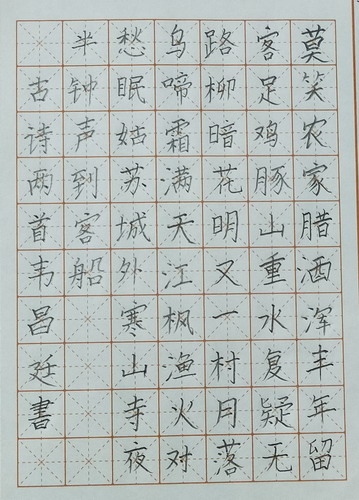 莫笑农家腊酒浑丰年留
客足鸡豚山重水复疑无
路柳暗花明又一村月落
乌啼霜满天江枫渔火对
愁眠姑苏城外寒山寺夜
半钟声到客船
古诗两首韦昌廷書